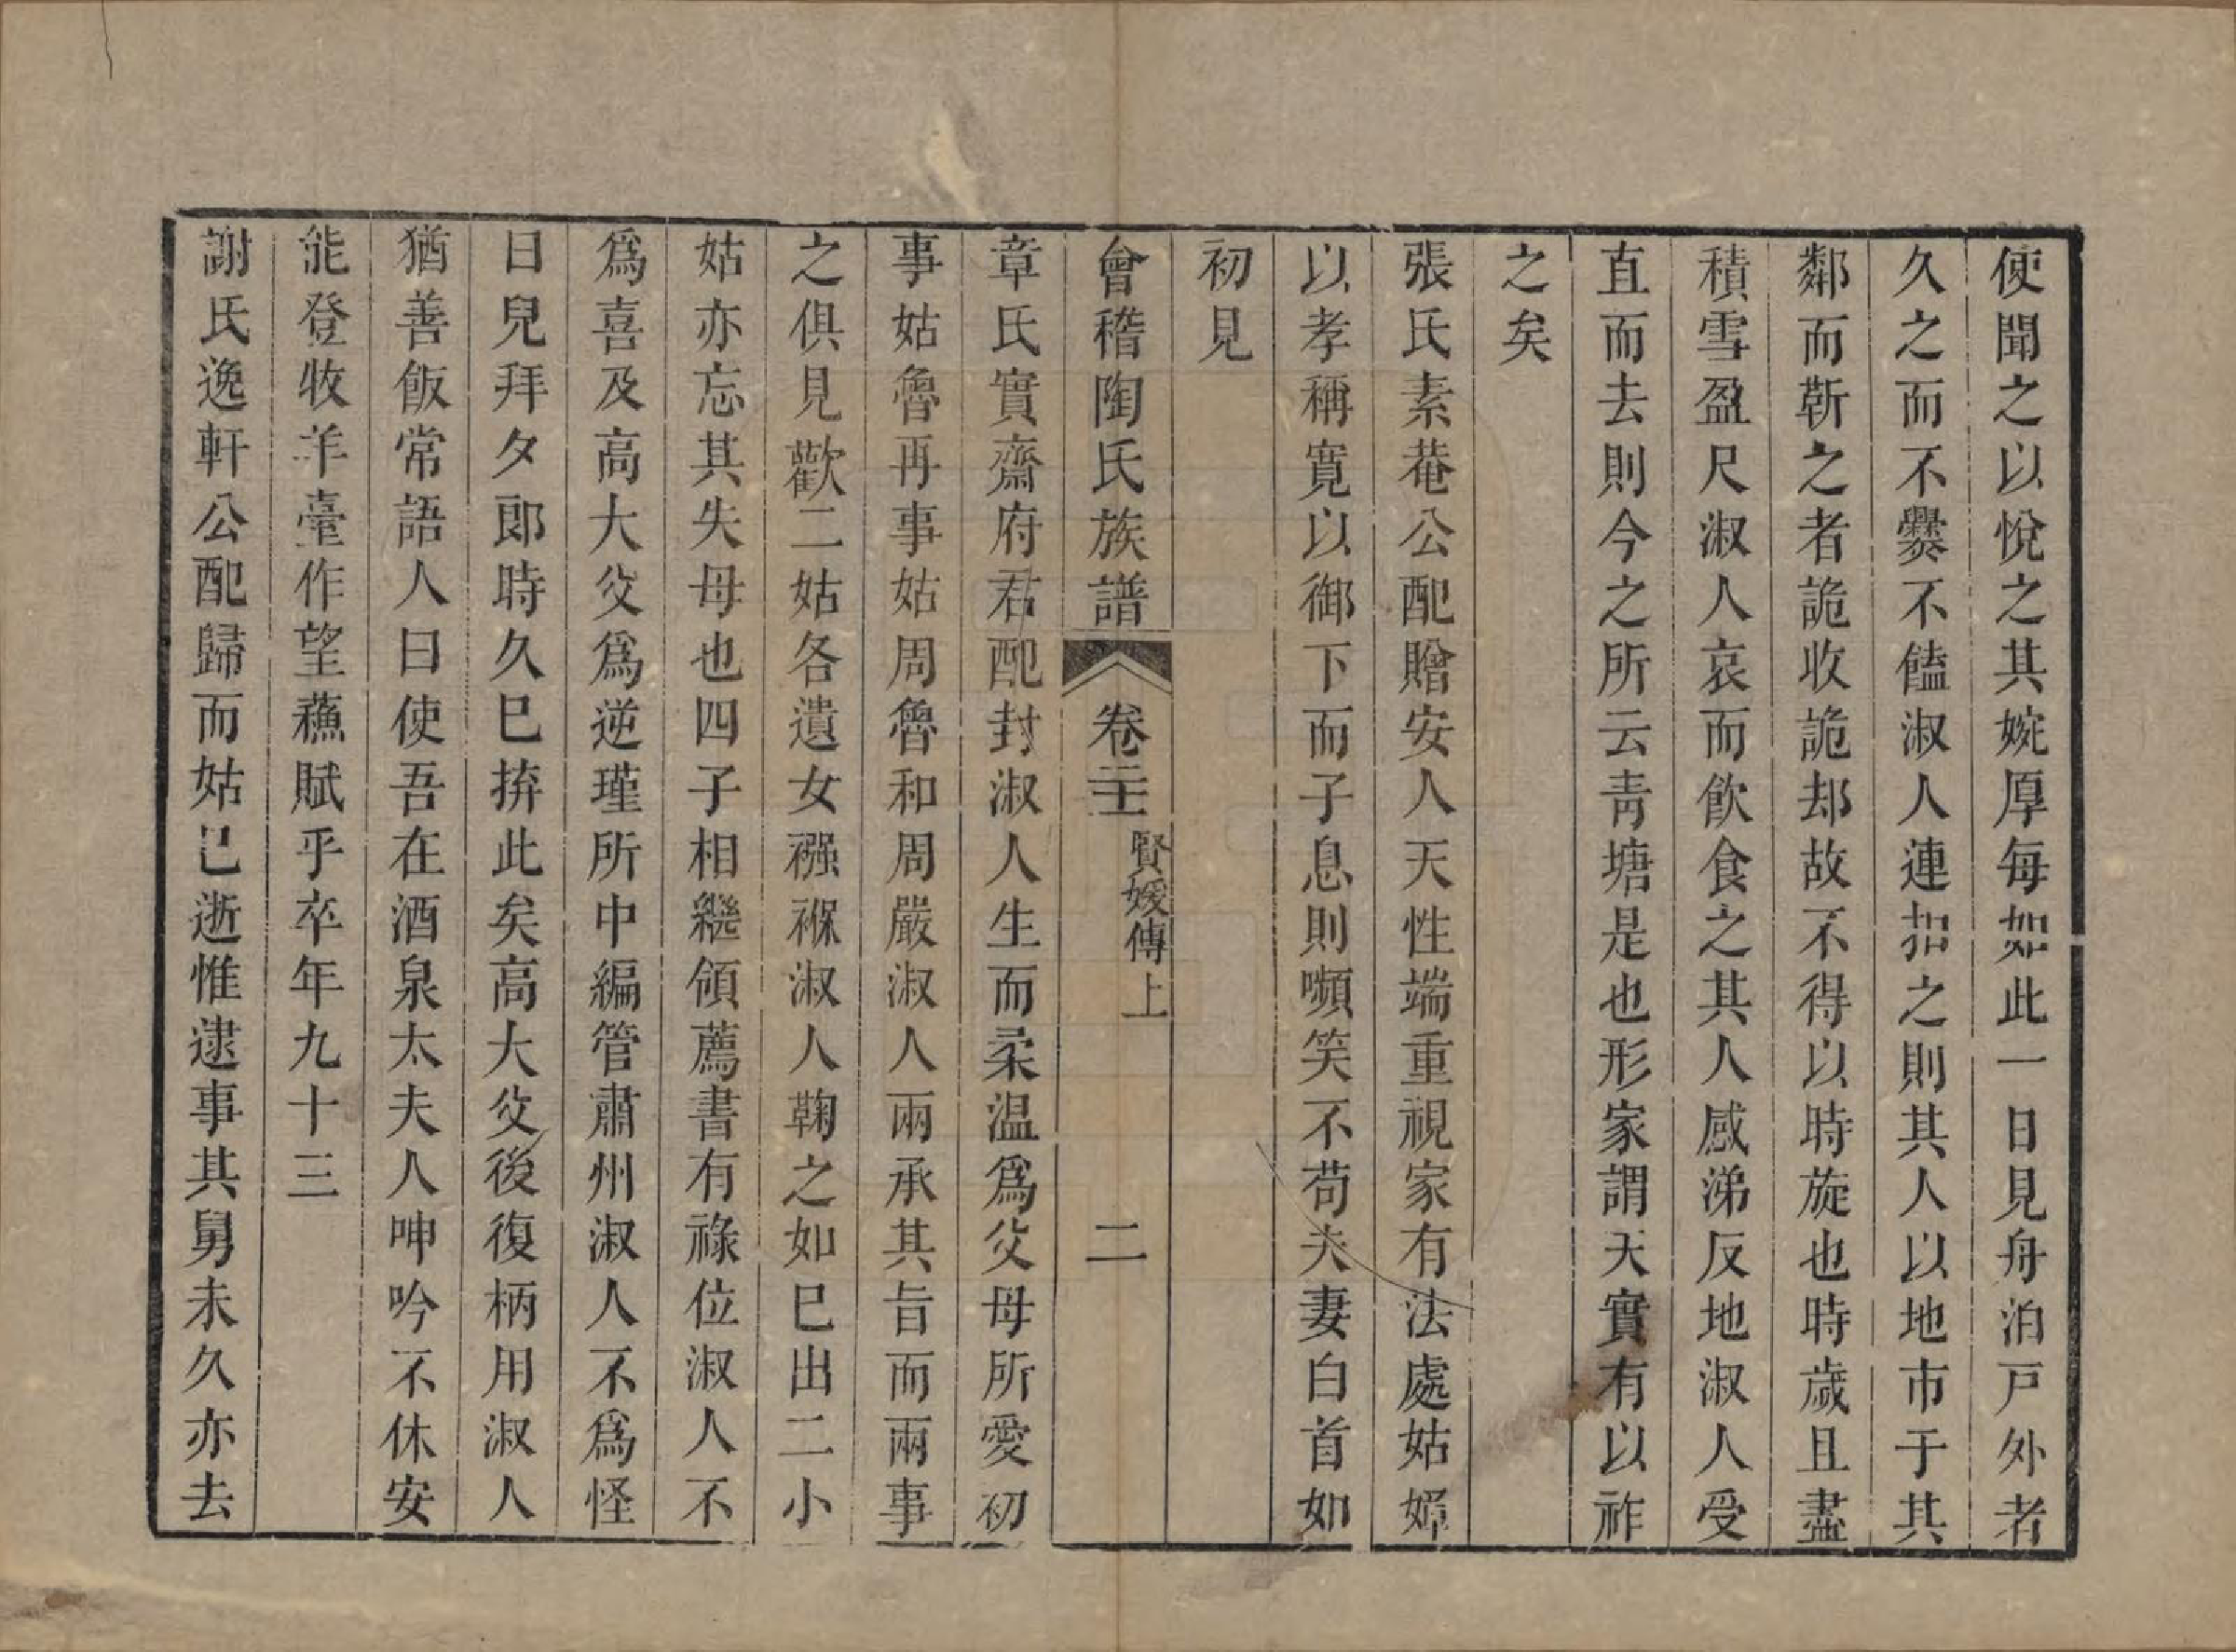 使聞之以悅之其婉厚每如此一日見舟泊戸外者
久之而不爨不饁淑人連扣之則其人以地市于其
鄰而靳之者詭收詭却故不得以時旋也時歲且盡
積雪盈尺淑人哀而飲食之其人感涕反地淑人受
直而去則今之所云青塘是也形家謂天實有以祚
之矣
張氏素菴公配贈安人天性端重視家有法處姑嫜
以孝稱寬以御下而子息則嚬笑不苟夫妻白首如
初見
會稽陶氏族譜 卷二十 賢媛傳上 二
章氏實齋府君配封淑人生而柔温爲父母所愛初
事姑魯再事姑周魯和周嚴淑人兩承其旨而兩事
之俱見歡二姑各遺女襁褓淑人鞠之如巳出二小
姑亦忘其失母也四子相繼領薦書有祿位淑人不
爲喜及高大父爲逆瑾所中編管肅州淑人不爲怪
日兒拜夕郎時久巳拚此矣高大父後復柄用淑人
猶善飯常語人曰使吾在酒泉太夫人呻吟不休安
能登收羊臺作望蘓賦乎卒年九十三
謝氏逸軒公配歸而姑巳逝惟逮事其舅未久亦去